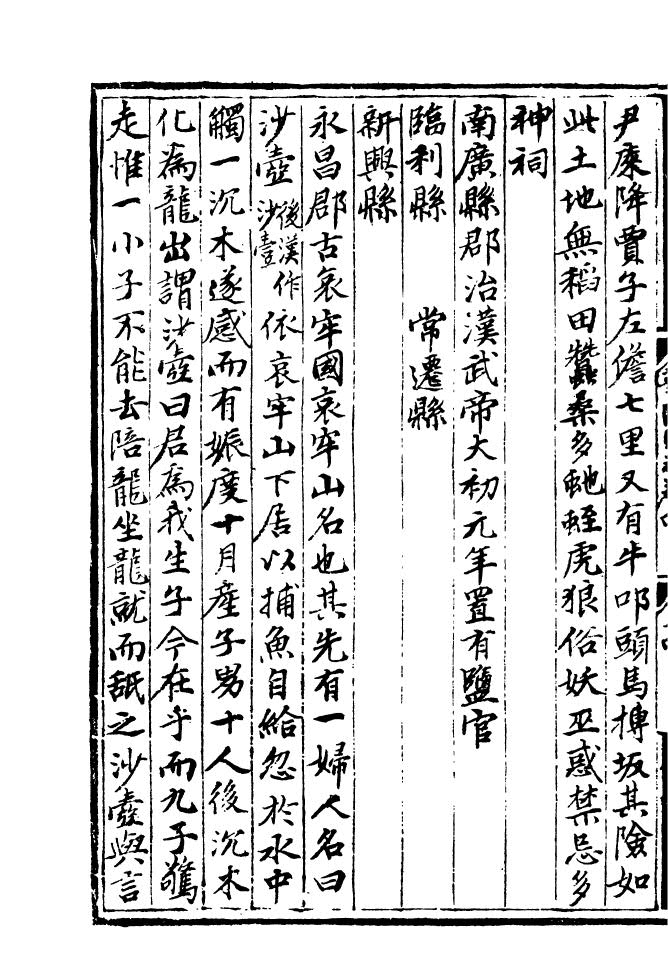 尹庲降賈子左儋七里又有牛叩頭馬搏坂其險如
此土地無稻田蠶桑多虵蛭虎狼俗妖巫惑禁忌多
神祠
南廣縣郡治漢武帝大初元年置有鹽官
臨利縣　　常遷縣
新興縣
永昌郡古哀牢國哀牢山名也其先有一婦人名曰
沙壺後漢作沙壹依哀牢山下居以捕魚自給忽於水中
觸一沉木遂感而有娠度十月產子男十人後沉木
化為龍出謂沙壺曰君為我生子今在乎而九子驚
走惟一小子不能去陪龍坐龍就而舐之沙壺與言